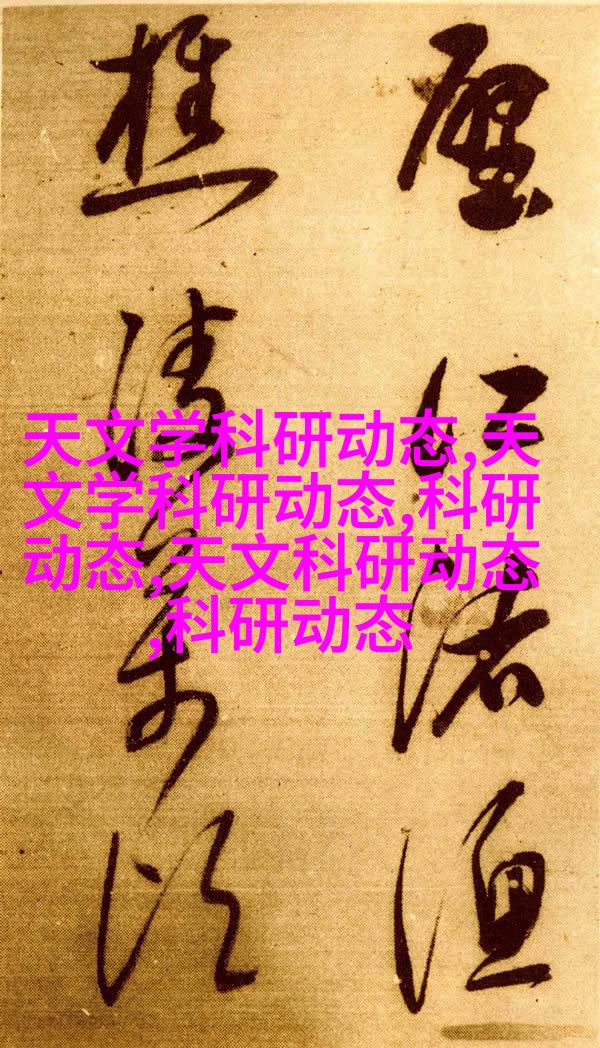 天文学科研动态,天
文学科研动态,科研
动态,天文科研动态
,科研动态
江渚渔
樵